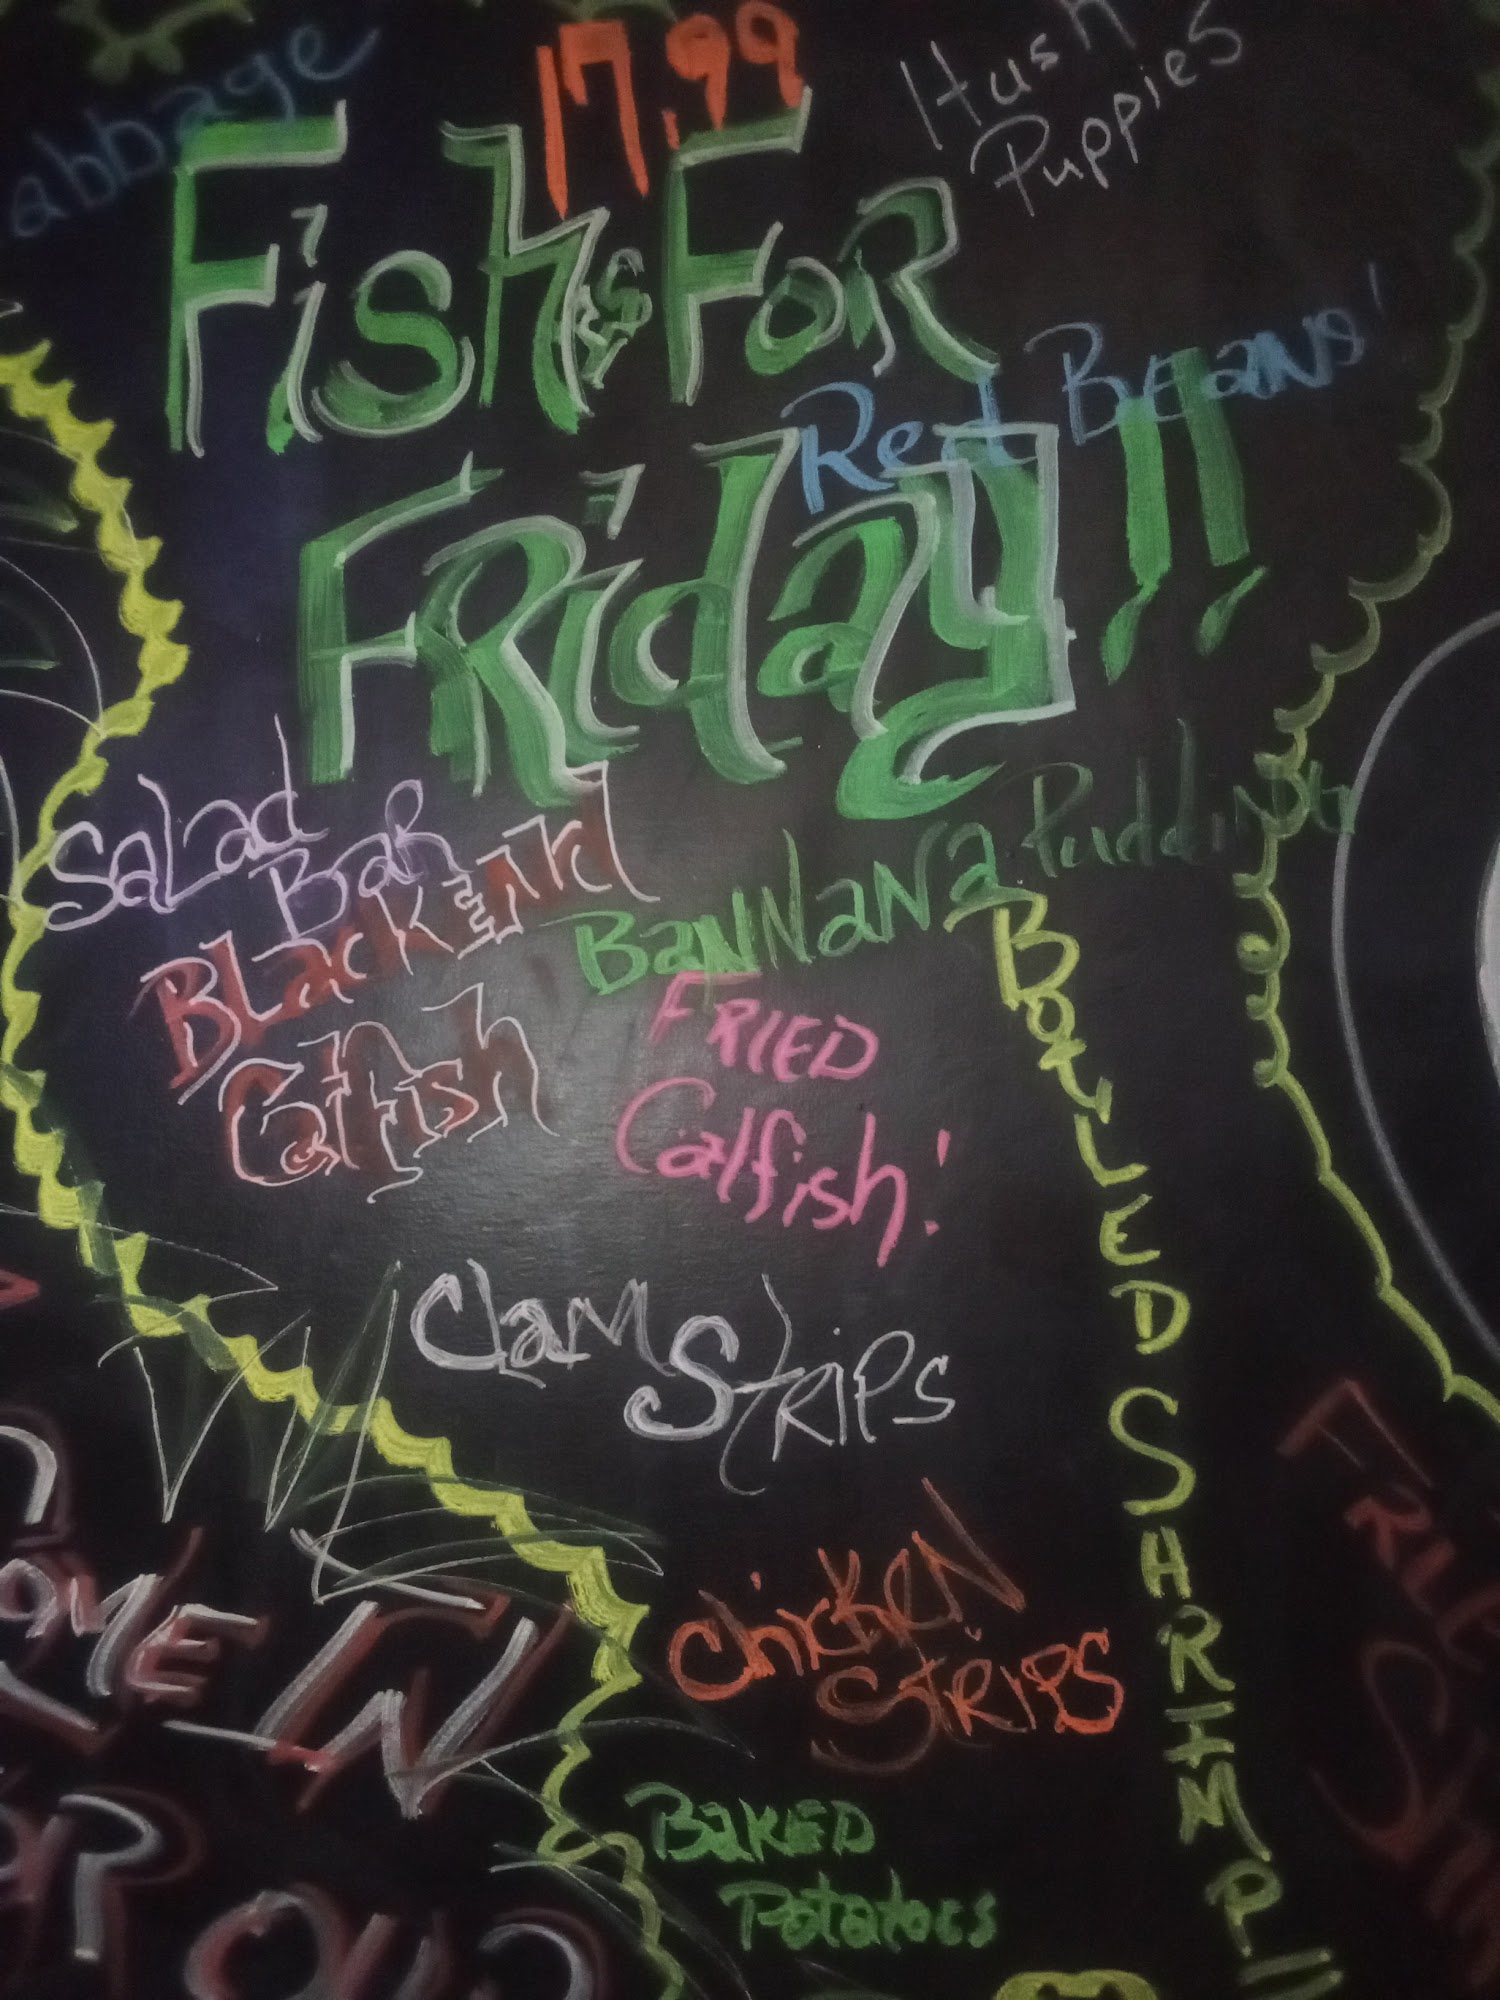 abbage
17.99
Hush
Puppies
Fish For
Red Beans!
Friday!!
Salad
Bar
Blackend
Catfish
Bannana Pudding
FRIED
Catfish!
BOYLED SHRIMP!!
Clam
Strips
Chicken
Strips
Baked
Potatoes